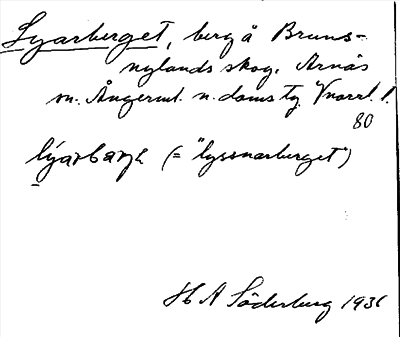 Lyarberget, berg å Bruns-
nylands skog, Arnäs
sn. Ångerml. n. doms tg. Vnorrl. l.
80
lýarbarjɛ (= "lyssnarberget")
H A Söderberg 1931